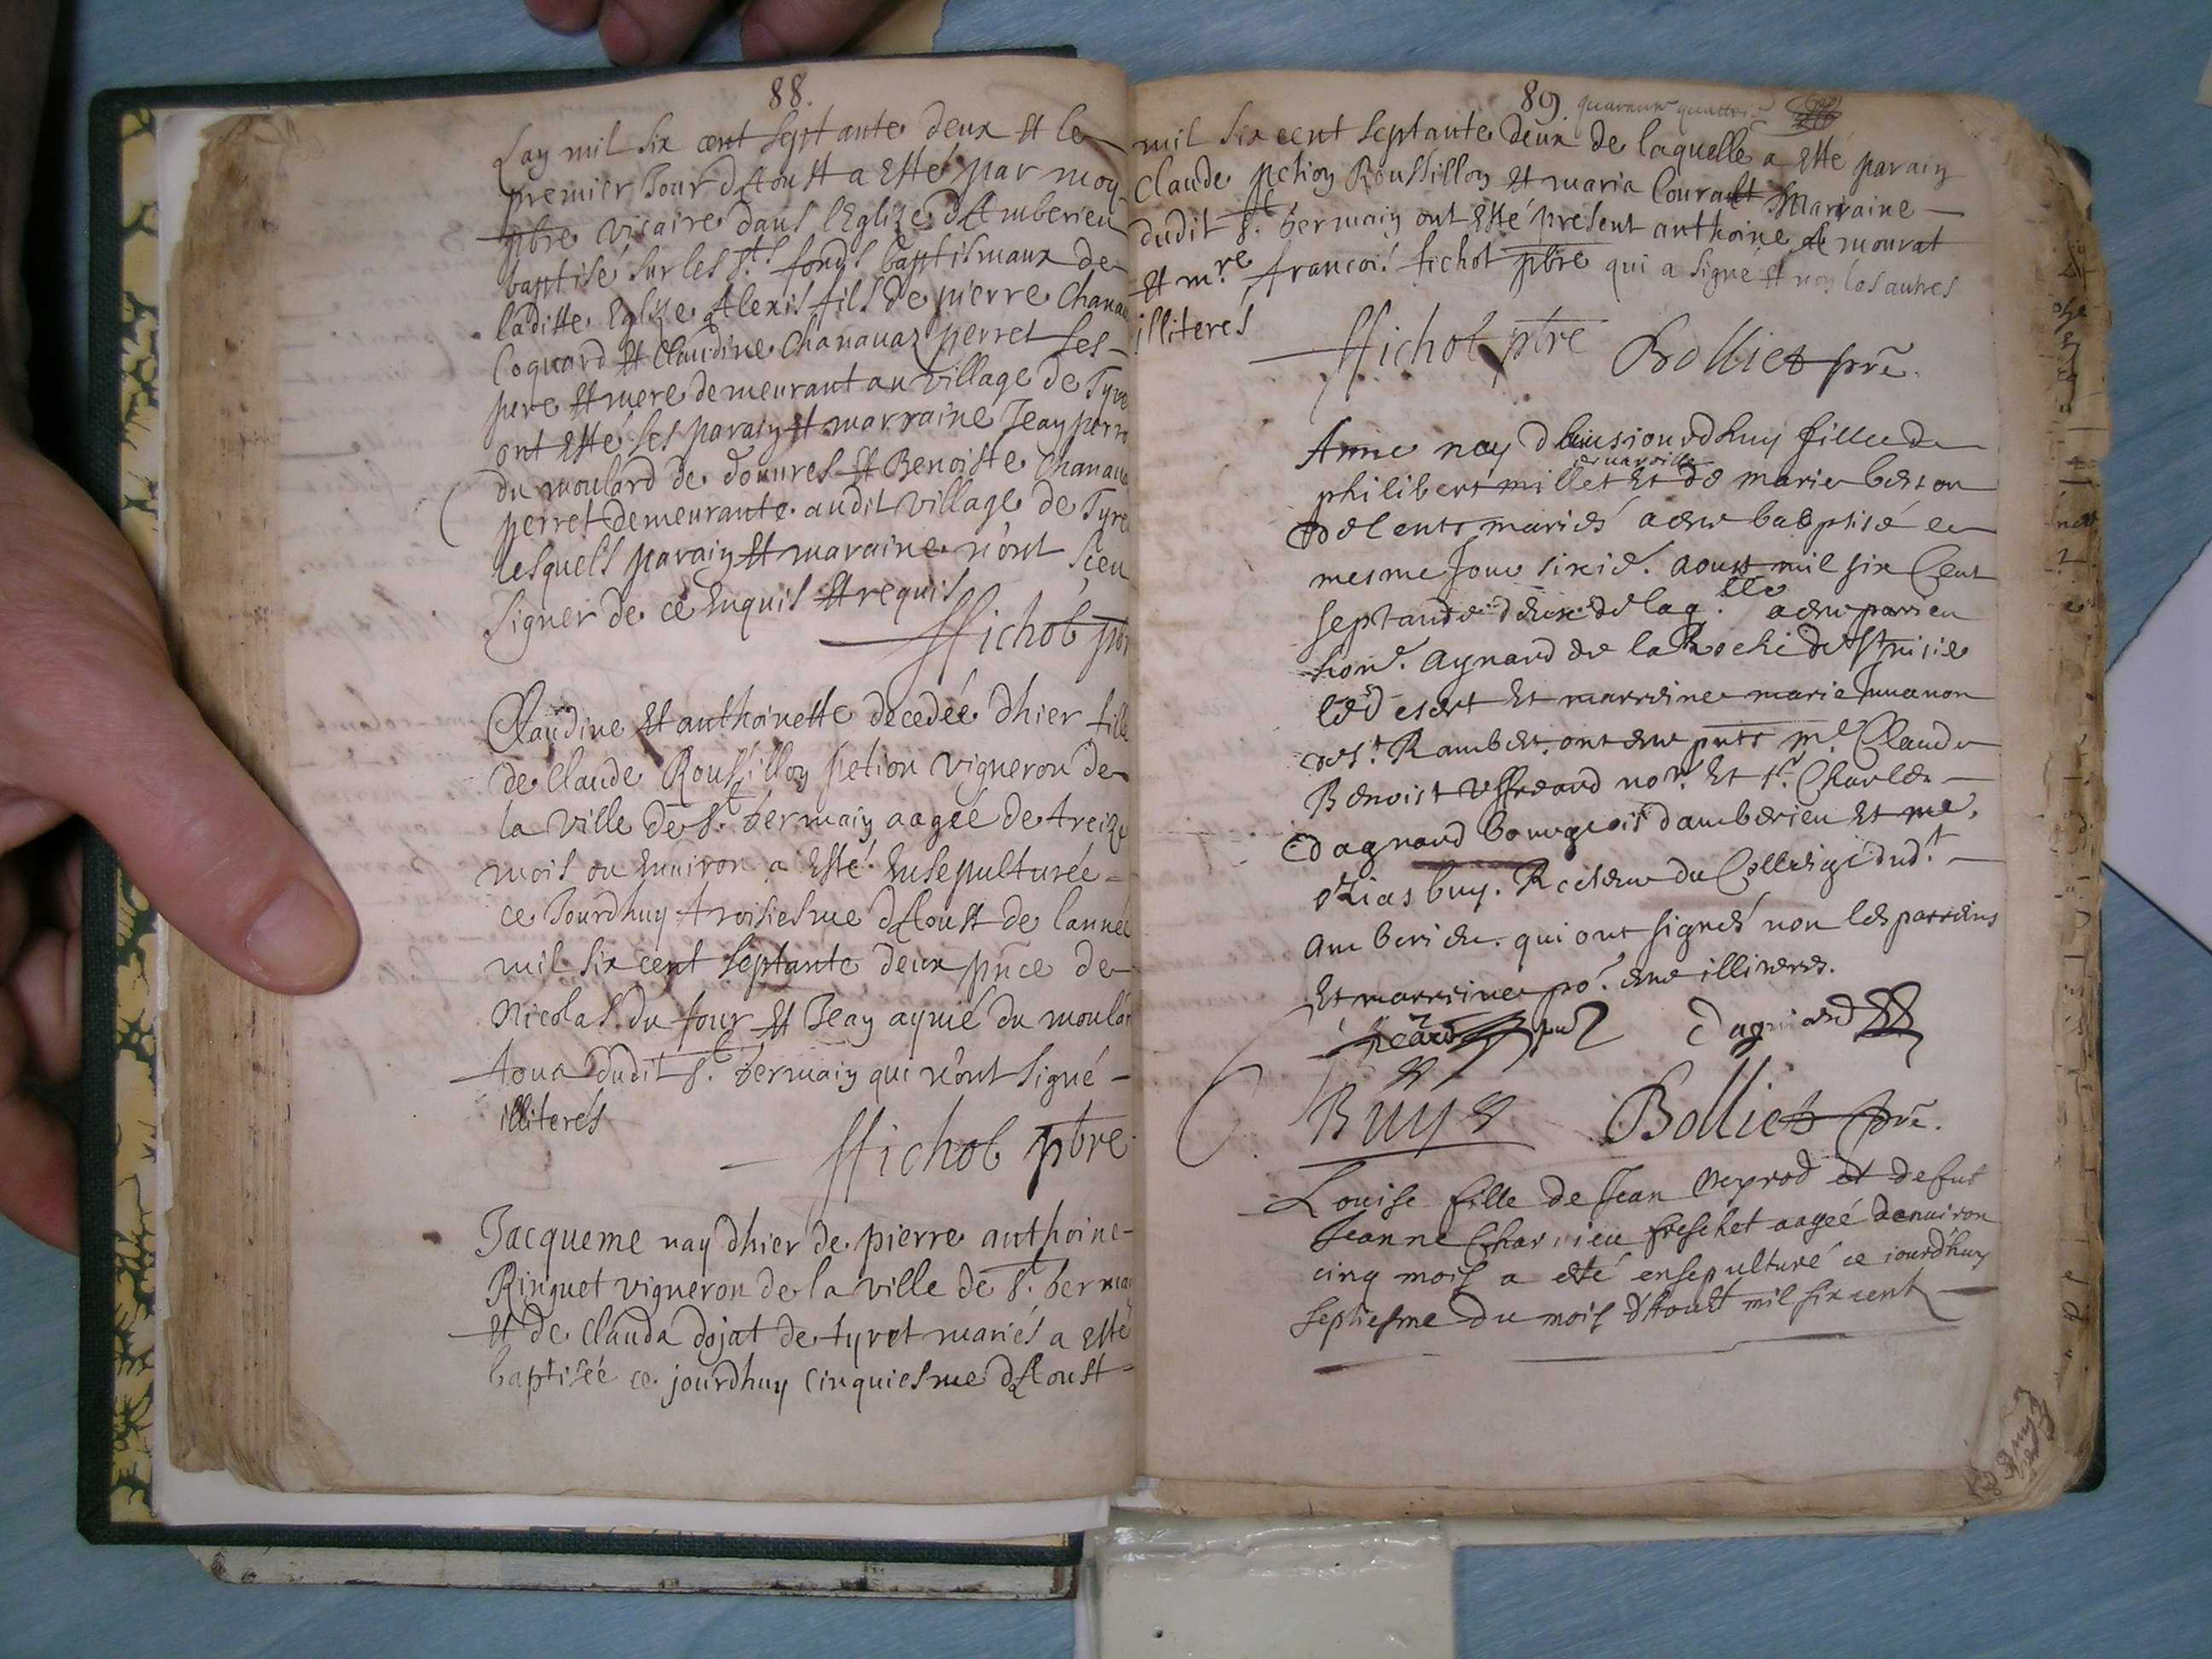 88.
Lay mil six cent septante deux et le
premier Jour dAoust a esté par moy
pbre vicaire dans lEglize dAmberieu
baptisé sur les sts fonds baptismaux de
laditte Eglize Alexis fils de pierre Chana
Coquard et Claudine Chanauaz perret ses
pere et mere demeurant au village de Tyre
ont esté ses parain et marraine Jean perr
du moulard de douures et Benoiste Chanaua
perret demeurante audit village de Tyre
lesquels parain et maraine n'ont sceu
signer de ce Enquis et requis
ffichot pbr
Claudine et anthoinette decedée dhier fille
de Claude Roussillon petion vigneron de
la ville de st. germain aagée de treize
mois ou Enuiron a esté Ensepulturée
ce Jourdhuy troisiesme dAoust de lannée
mil six cent septante deux pnce de
Nicolas du four et Jean aynié du moular
tous dudit st. germain qui n'ont signé
illiterés
ffichot pbre
Jacqueme nay dhier de pierre anthoine
Ringuet vigneron de la ville de st. germain
et de Clauda dojat de tyret mariés a esté
baptisée ce jourdhuy Cinquiesme dAoust
89. quarante quattre
mil six cent septante deux de laquelle a esté parain
Claude petion Roussillon et maria Courault Marraine
dudit st. germain ont esté present anthoine de mourat
et mre francois fichot pbre qui a signé et non les autres
illiterés
ffichot ptre Bolliet pre.
Anne nay dans jourdhuy fille de
philibert millet et de marie beston
dolents mariés a este babptisé le
mesme Jour sixie. aoust mil six Cent
septante deux de laq.lle a este parrien
hon. aynard de la Roche de
Et marreine marie Juuanon
de st. Rambert. ont este pnts me. Claude
Benoist nore. Et sr. Charles
Dagnard bourgeois damberieu Et me.
ozias buy. Recteur du Colleige dudt.
Amberieu. qui ont signés non les parreins
Et marreines po. estre illiteres.
Dagniard
Buys Bolliet pre.
Louise fille de Jean Neprod et defut
Jeanne Charuieu freschet aageé denuiron
cinq mois a esté ensepulturé ce jourdhuy
septiesme du mois dAoust mil six cent